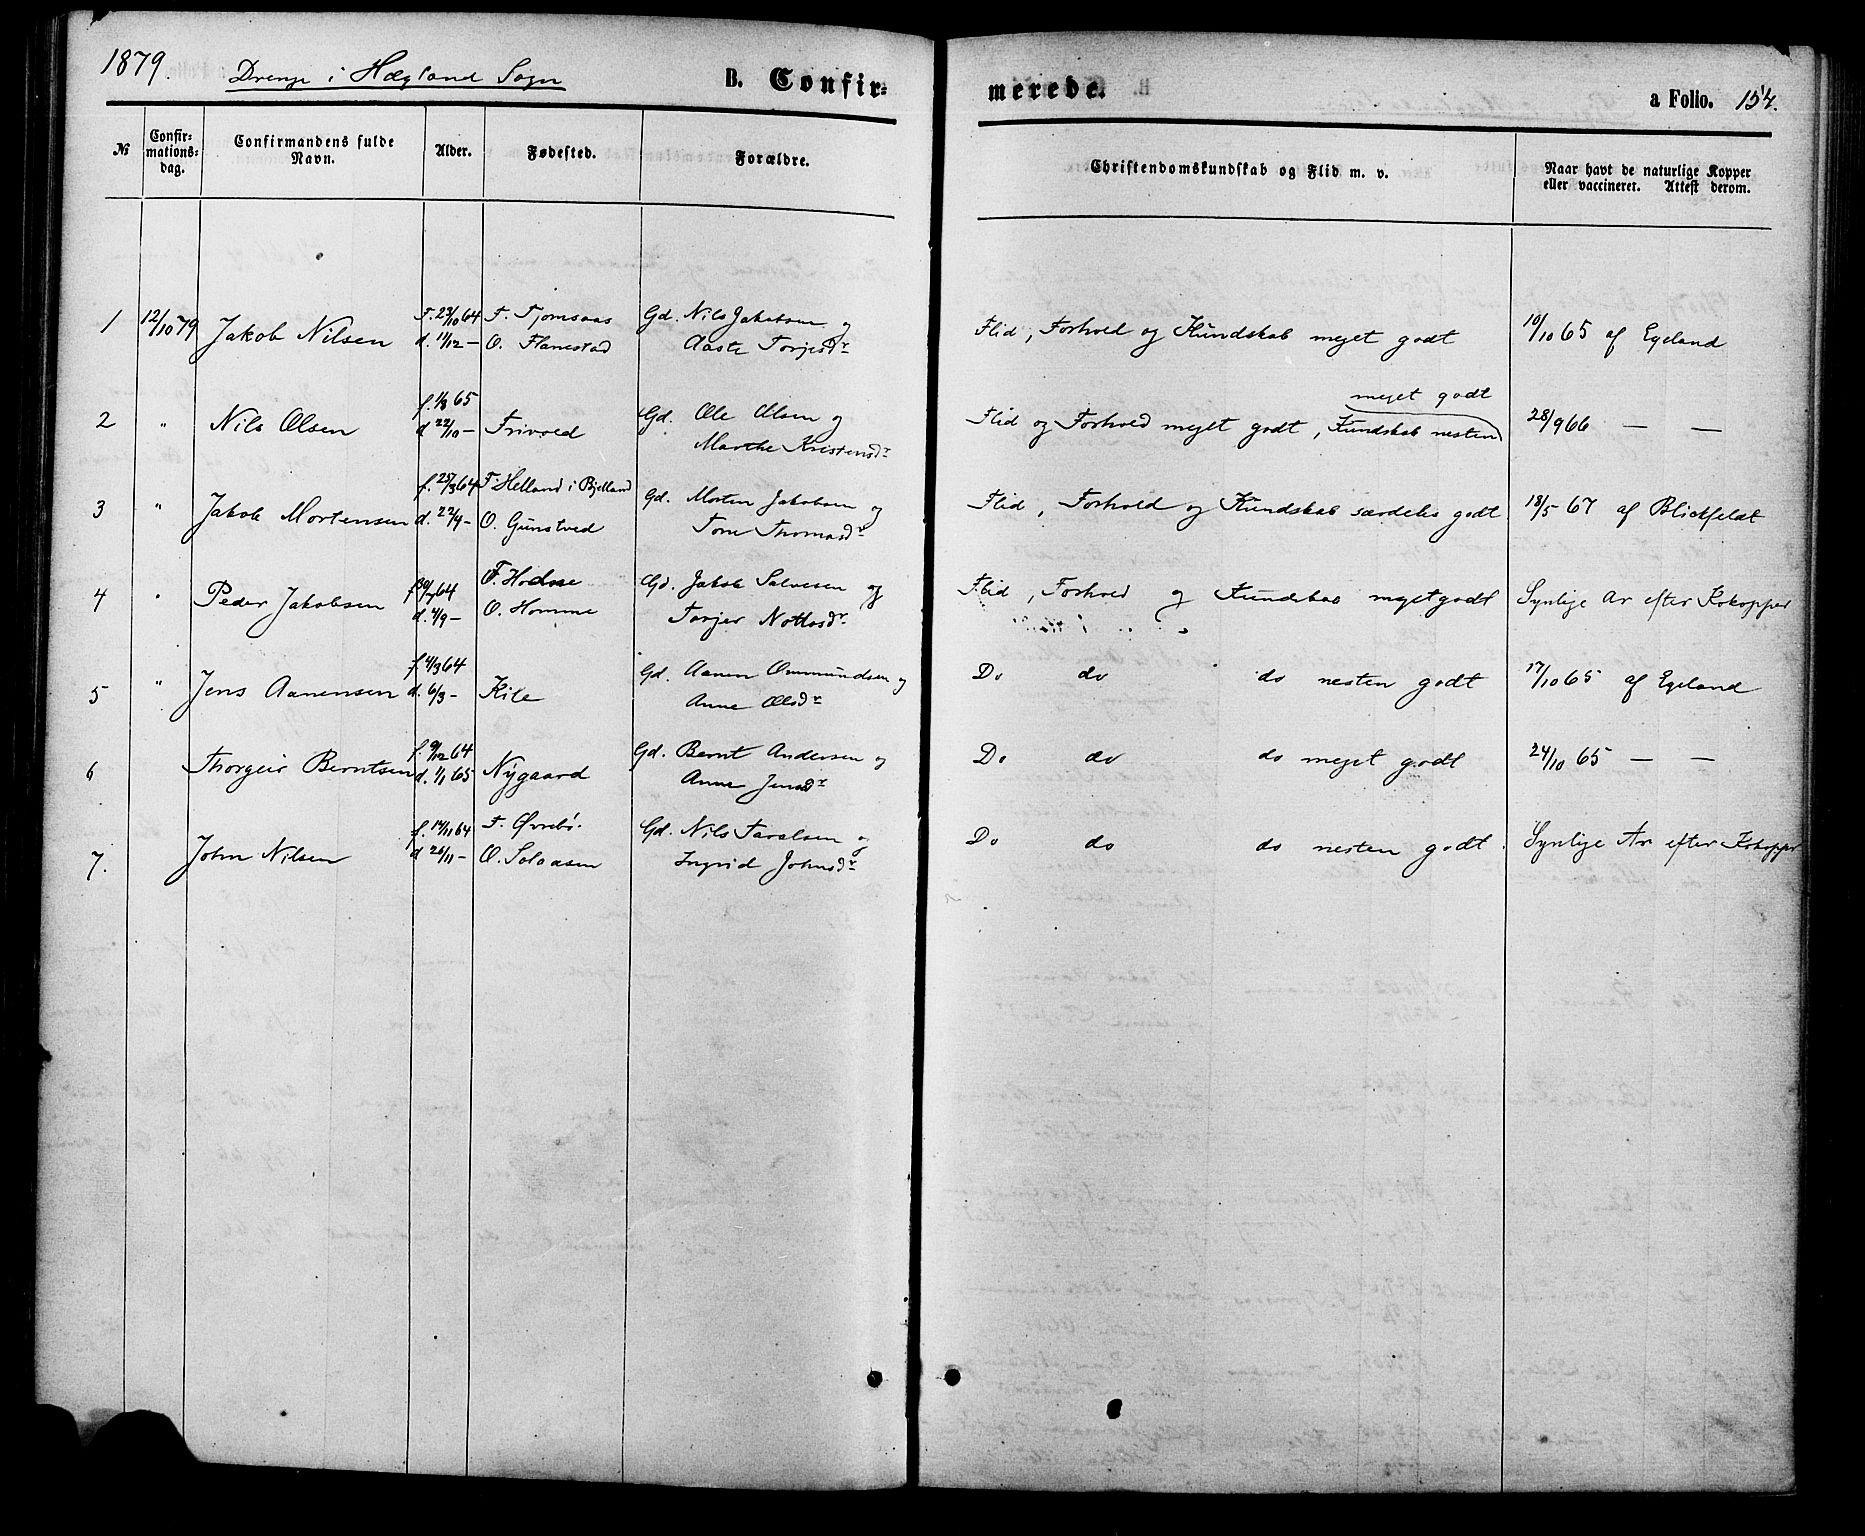 1879. Drenge i Hægland Sogn B. Confir= merede. a Folio. 154.
№ Confir=mations=dag. Confirmandens fulde Navn. Alder. Fødested. Forældre. Christendomskundskab og Flid m. v. Naar havt de naturlige Kopper eller vaccineret. Attest derom.
1 12/10 79 Jakob Nilsen F. 23/10 64 F. Tjomsaas Gd. Nils Jakobsen og Flid, Forhold og Kundskab meget godt 10/10 65 af Egeland
d. 11/12 — O. Flanestad Aaste Torjesdr
meget godt
2 " Nils Olsen f. 1/8 65 Gd. Ole Olsen og Flid og Forhold meget godt, Kundskab nesten 28/9 66 — —
d 22/10 — Trivold Marthe Kristensdr
3 " Jakob Mortensen f. 25/3 64 F. Helland i Bjelland Gd. Morten Jakobsen og Flid, Forhold og Kundskab særdeles godt 18/5 67 af Blickfeldt
d. 22/4 — O. Gunstved Tone Thomasdr
4 " Peder Jakobsen 64 Gd. Jakob Salvesen og Flid, Forhold og Kundskab meget godt Synlige Ar efter Kokopper
d. 4/9 — O. Homme Torjer Nottosdr
5 " Jens Aanensen f. 4/3 64 Gd. Aanen Ommundsen og Do do do nesten godt 17/10 65 af Egeland
d. 6/3 — Kile Anne Olsdr
6 Thorgeir Berntsen f. 9/12 64 Gd. Bernt Andersen og Do do do meget godt 24/10 65 — —
d. 1/1 65 Nygaard Anne Jensdr
7. John Nilsen f. 14/11 64 F. Øvrebø. Gd. Nils Taralsen og Do do do nesten godt. Synlige Ar efter Kokopper
d 26/11 — O. Solaasen Ingrid Johnsdr